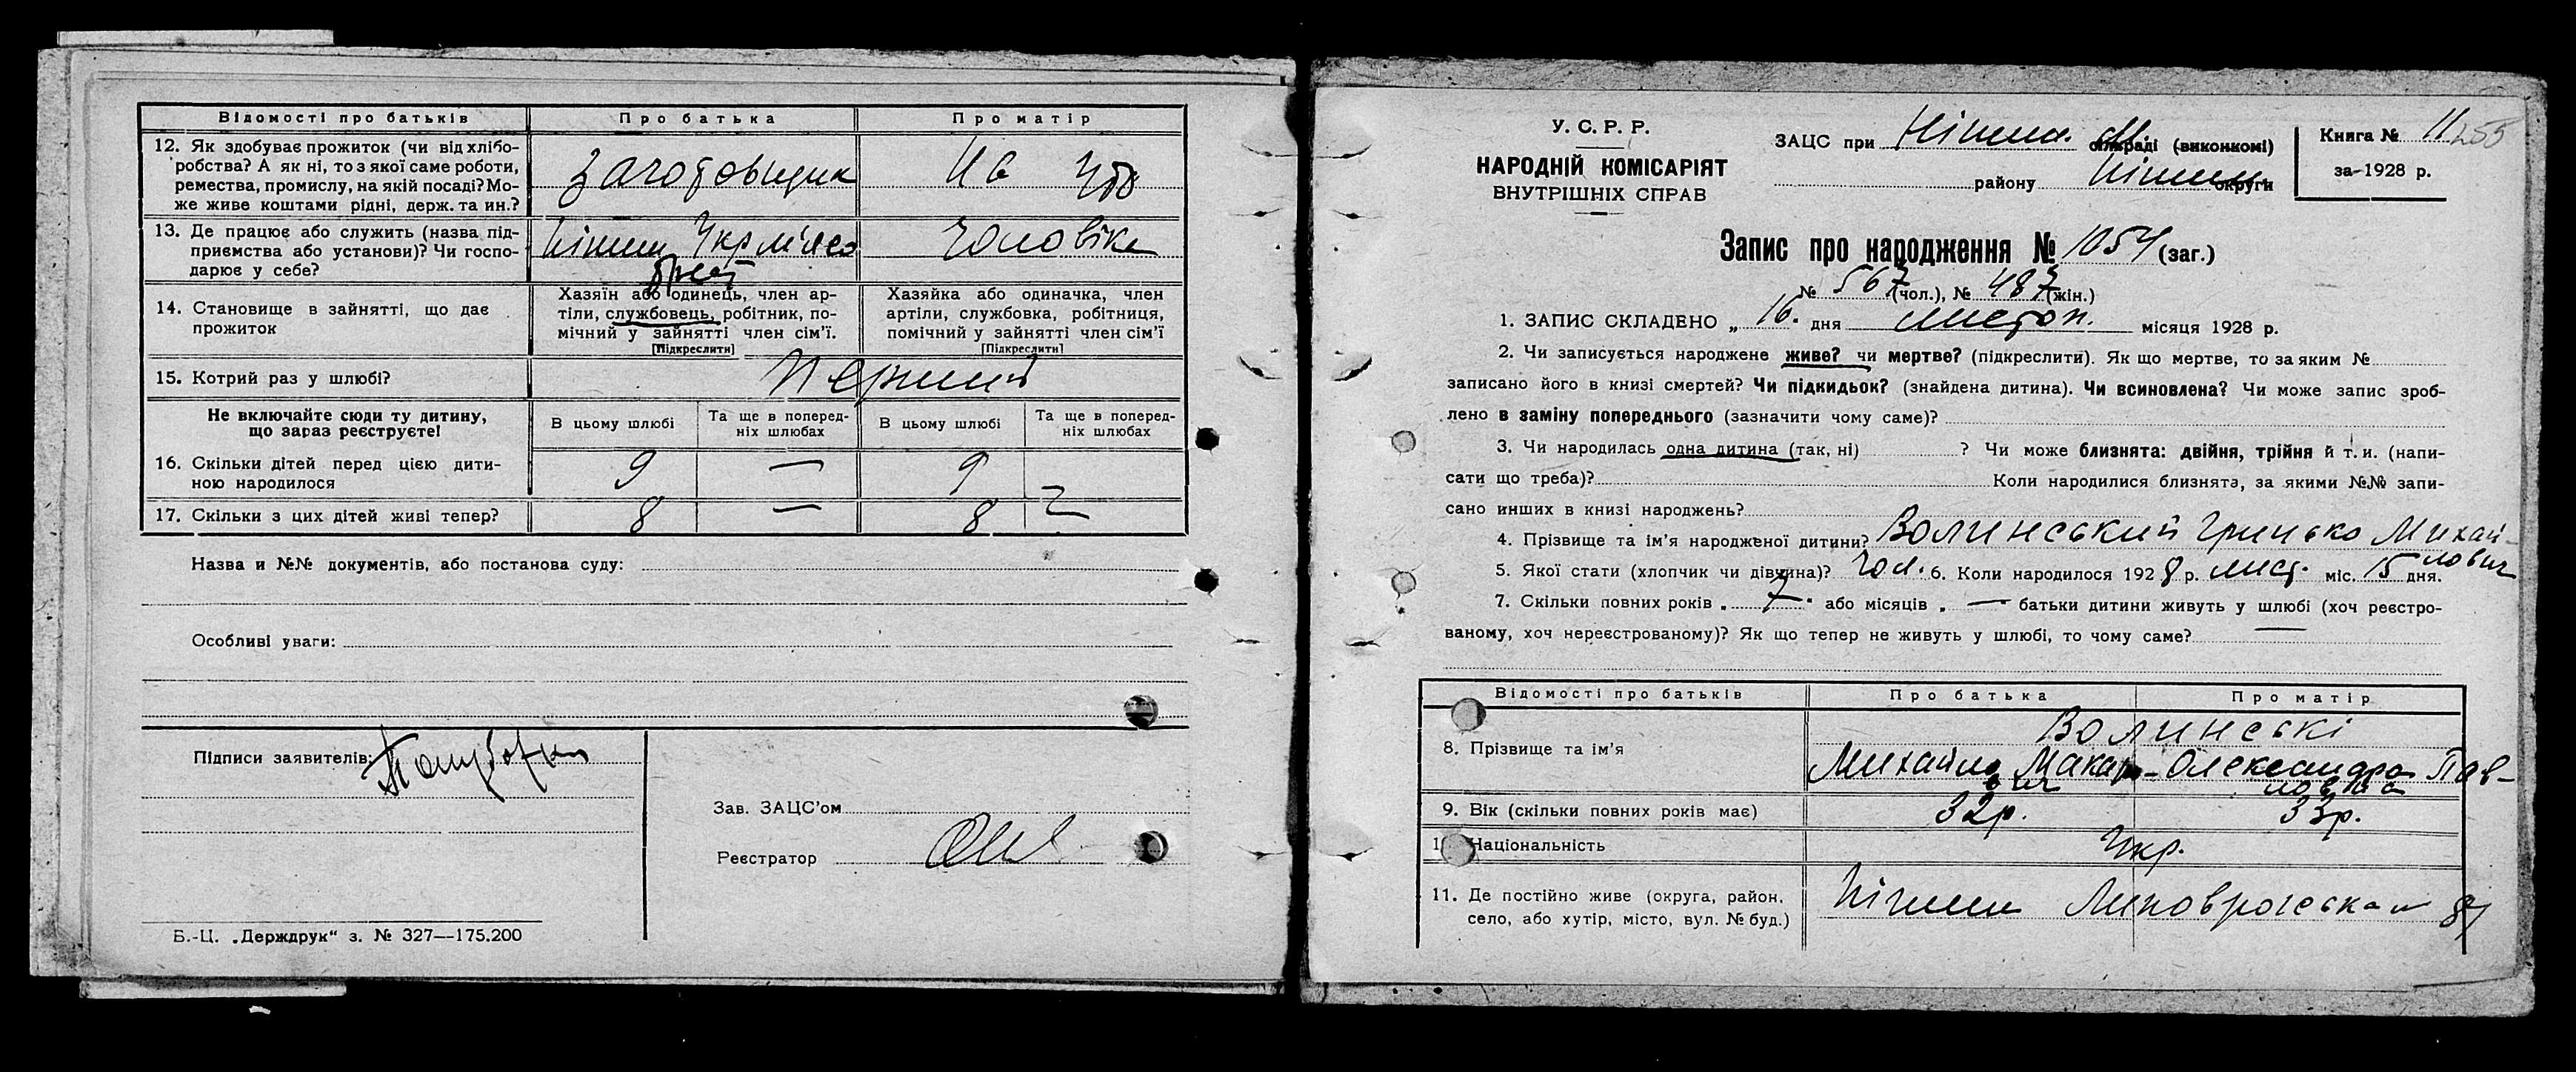 Відомості про батьків Про батька Про матір
12. Як здобуває прожиток (чи від хлібо-
робства? А як ні, то з якої саме роботи,
ремества, промислу, на якій посаді? Мо-
же живе коштами рідні, держ. та ин.?
Заготовщик На
13. Де працює або служить (назва під-
приємства або установи)? Чи госпо-
дарює у себе?
Ніжин Укрмясо чоловіка
14. Становище в зайнятті, що дає
прожиток
Хазяїн або одинець, член ар-
тіли, службовець, робітник, по-
мічний у зайнятті член сім'ї.
[Підкреслити]
Хазяйка або одиначка, член
артіли, службовка, робітниця,
помічний у зайнятті член сім'ї
[Підкреслити]
15. Котрий раз у шлюбі? Перший
Не включайте сюди ту дитину,
що зараз реєструєте!
В цьому шлюбі Та ще в поперед-
ніх шлюбах В цьому шлюбі Та ще в поперед-
ніх шлюбах
16. Скільки дітей перед цією дити-
ною народилося 9 — 9
17. Скільки з цих дітей живі тепер? 8 — 8
Назва и №№ документів, або постанова суду:
Особливі уваги:
Підписи заявителів:
Зав. ЗАЦС'ом
Реєстратор
Б.-Ц. „Держдрук" з. № 327—175.200
У. С. Р. Р.
НАРОДНІЙ КОМІСАРІЯТ
ВНУТРІШНІХ СПРАВ
ЗАЦС при Ніжин. сільраді (виконкомі)
району Ніжин. округи
Книга № 11 255
за 1928 р.
Запис про народження № 1054 (заг.)
№ 567 (чол.), № 487 (жін.)
1. ЗАПИС СКЛАДЕНО „ 16. дня листоп. місяця 1928 р.
2. Чи записується народжене живе? чи мертве? (підкреслити). Як що мертве, то за яким №
записано його в книзі смертей? Чи підкидьок? (знайдена дитина). Чи всиновлена? Чи може запис зроб-
лено в заміну попереднього (зазначити чому саме)?
3. Чи народилась одна дитина (так, ні) ? Чи може близнята: двійня, трійня й т. и. (напи-
сати що треба)? Коли народилися близнята, за якими №№ запи-
сано инших в книзі народжень?
4. Прізвище та ім'я народженої дитини? Волинський Гринько Михай-
лович
5. Якої стати (хлопчик чи дівчина)? Чол. 6. Коли народилося 1928 р. лист. міс. 15 дня.
7. Скільки повних років „ 7 " або місяців „ — " батьки дитини живуть у шлюбі (хоч реєстро-
ваному, хоч нереєстрованому)? Як що тепер не живуть у шлюбі, то чому саме? —
Відомості про батьків Про батька Про матір
Волинські
8. Прізвище та ім'я Михайло Макар- Олександра Пав-
вич ловна
9. Вік (скільки повних років має) 32р. 33р.
Національність Укр.
11. Де постійно живе (округа, район,
село, або хутір, місто, вул. № буд.)
Ніжин 87